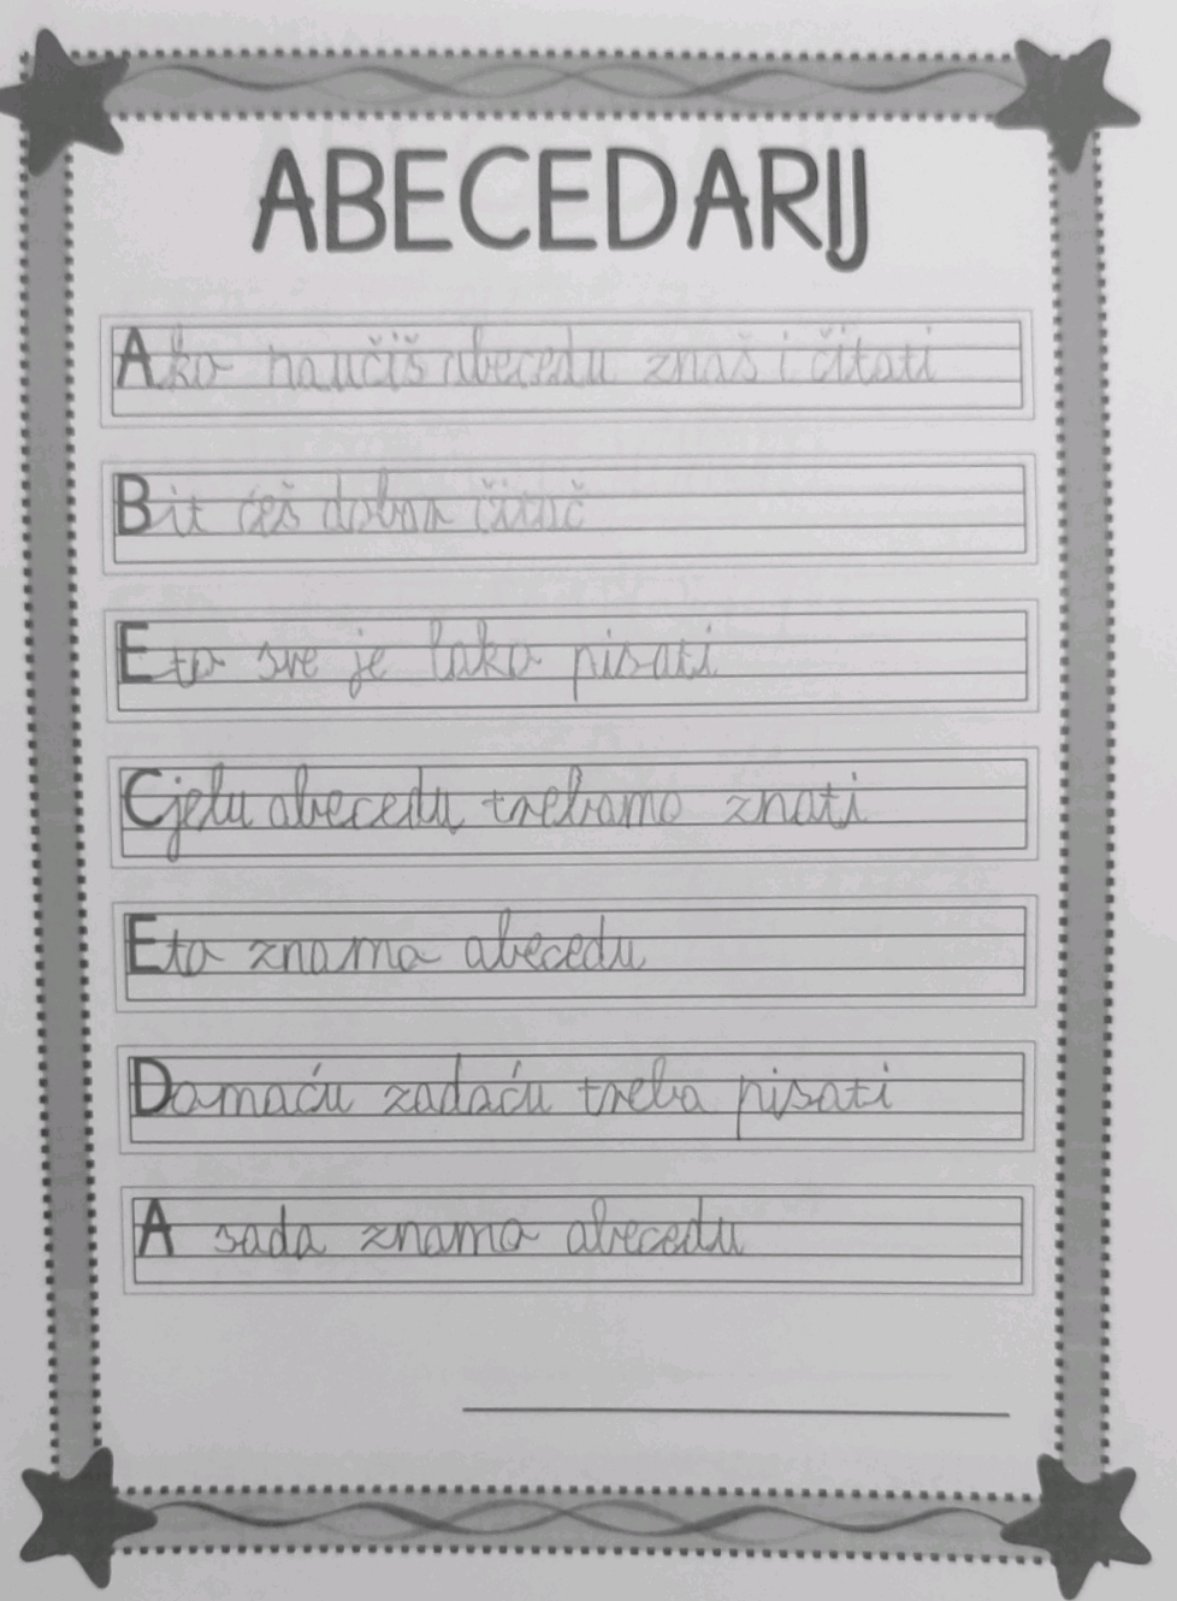 ABECEDARIJ
Ako naučiš abecedu znaš i čitati
Bit ćeš dobar čitač
Eto sve je lako pisati
Cjelu abecedu trebamo znati
Eto znamo abecedu
Domaću zadaću treba pisati
A sada znamo abecedu